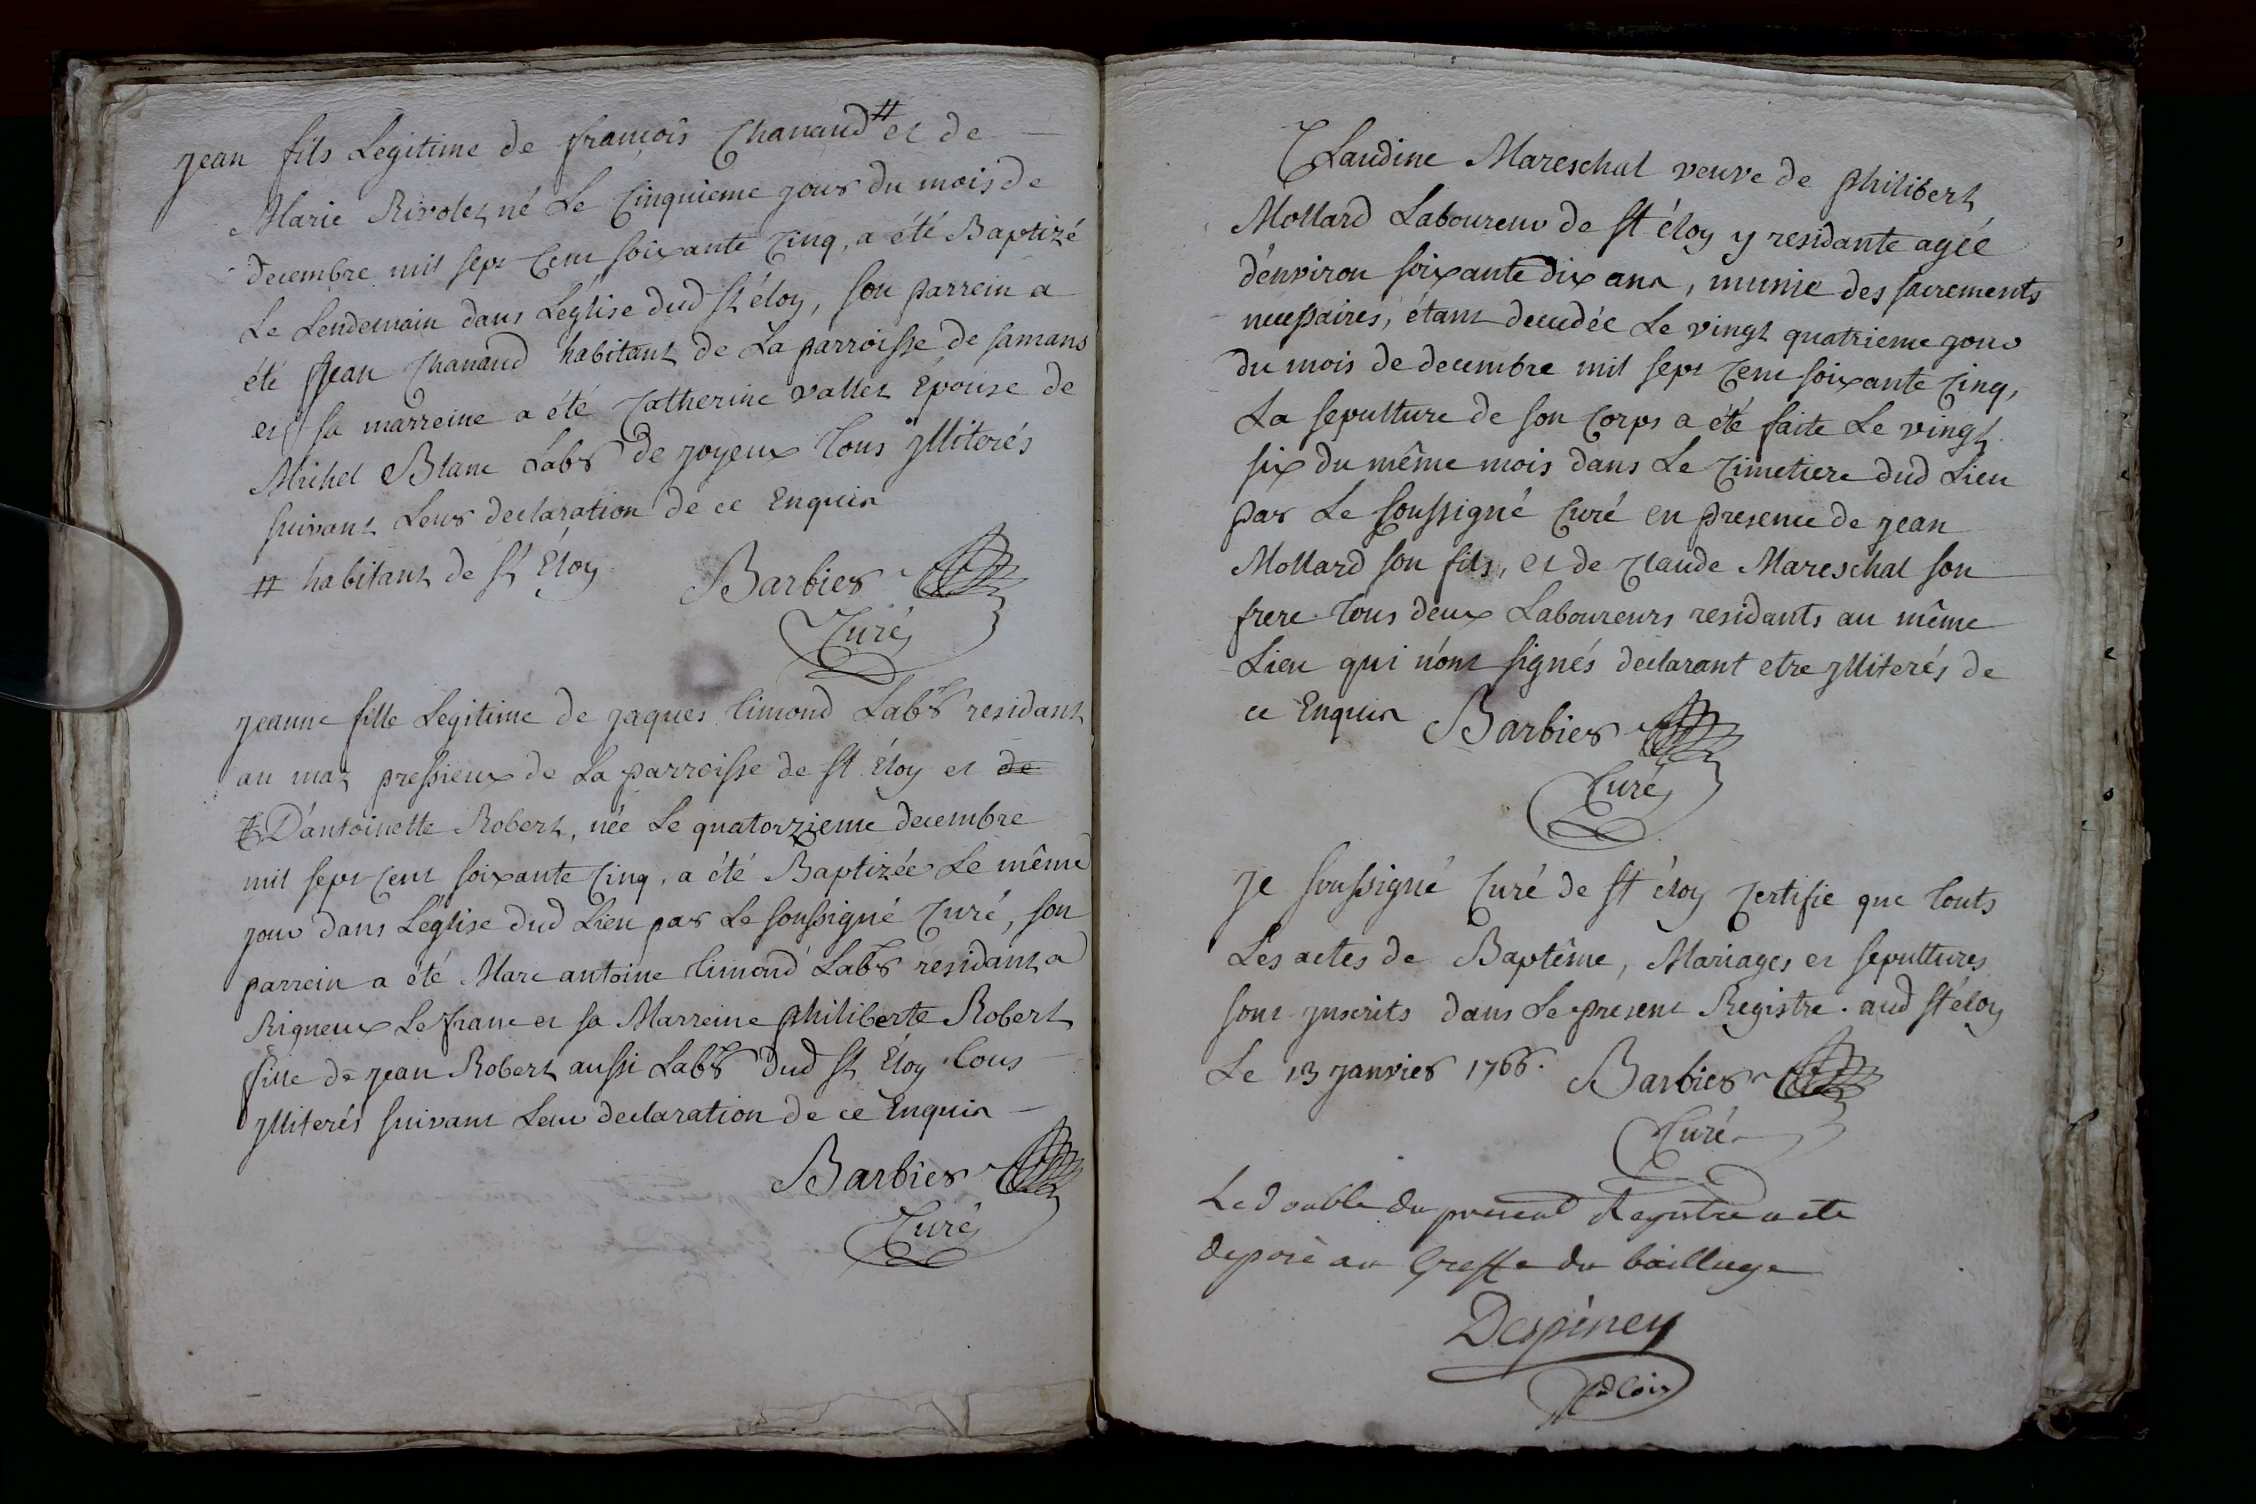 Jean fils Legitime de françois Chanaud # et de
Marie Rivolet né Le Cinquieme jour du mois de
decembre mil sept Cent soixante Cinq, a été Baptizé
Le Lendemain dans L'église dud St éloy, son parrein a
été Jean Chanaud habitant de La parroisse de samans
et sa marreine a été Catherine vallet Epouse de
Michel Blanc Labr de joyeux tous jlliterés
suivant Leur declaration de ce Enquis
# habitant de St Eloy Barbier
Curé
jeanne fille Legitime de jaques limond Labr residant
au maz pressieux de La parroisse de St Eloy et de
D'antoinette Robert, née Le quatorzieme decembre
mil sept Cent soixante Cinq, a été Baptizée Le même
jour dans L'église dud Lieu par Le soussigné Curé, son
parrein a été Marc antoine limond Labr residant a
Rigneux Le franc et sa Marreine philiberte Robert
fille de jean Robert aussi Labr dud St Eloy tous
jlliterés suivant Leur declaration de ce Enquis
Barbier
Curé
Claudine Mareschal veuve de philibert
Mollard Laboureur de St éloy y residante agée
d'environ soixante dix ans, munie des sacrements
necessaires, étant decedée Le vingt quatrieme jour
du mois de decembre mil sept Cent soixante Cinq,
La sepulture de son Corps a été faite Le vingt
six du même mois dans Le Cimetiere dud Lieu
par Le soussigné Curé en presence de jean
Mollard son fils, et de Claude Mareschal son
frere tous deux Laboureurs residants au même
Lieu qui n'ont signés declarant etre jlliterés de
ce Enquis Barbier
Curé
Je soussigné Curé de St éloy Certifie que touts
Les actes de Baptême, Mariages et sepultures
sont jnscrits dans Le present Registre. aud St éloy
Le 13 janvier 1766. Barbier
Curé
Le double du present Registre a ete
deposé au Greffe du bailliage
Despiney